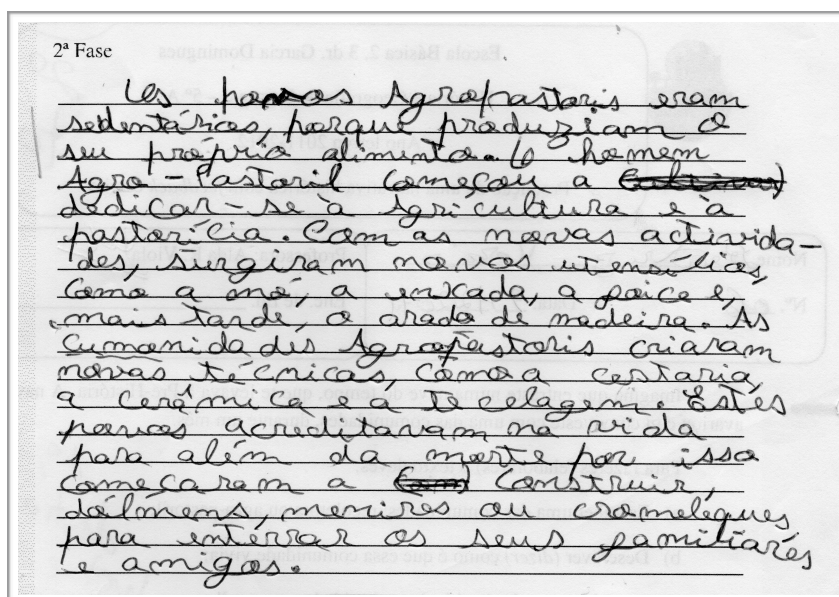 2ª Fase
Os povos Agropastoris eram
sedentários, porque produziam o
seu próprio alimento. O homem
Agro-Pastoril começou a
dedicar-se à Agricultura e à
pastorícia. Com as novas activida-
des, surgiram novos utensílios,
como a mó, a enxada, a foice e,
mais tarde, o arado de madeira. As
cumonidades Agropastoris criaram
novas técnicas, como a cestaria,
a cerâmica e a tecelagem. Estes
povos acreditavam na vida
para além da morte por isso
começaram a construir,
dólmens, menires ou cromeleques,
para enterrar os seus familiares
e amigos.